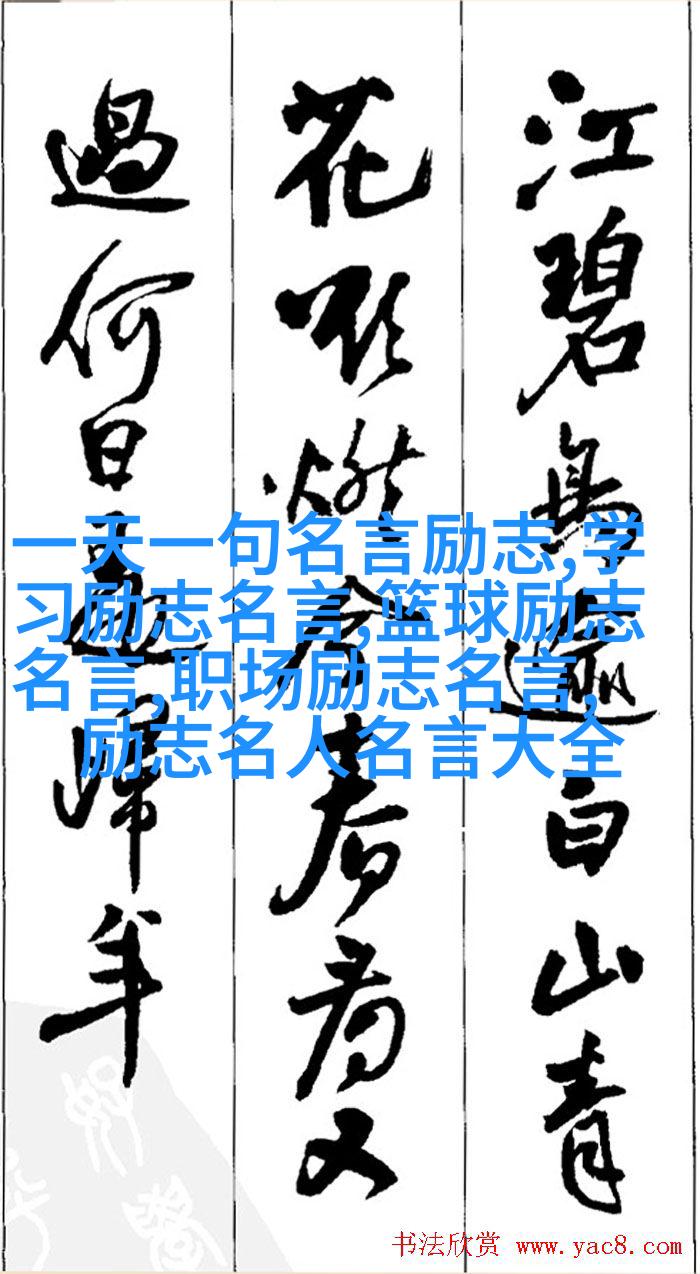 江碧鸟逾白山青
花欲燃今春看又
過何日是歸年
一天一句名言励志,学
习励志名言,篮球励志
名言,职场励志名言,
励志名人名言大全
书法欣赏 www.yac8.com